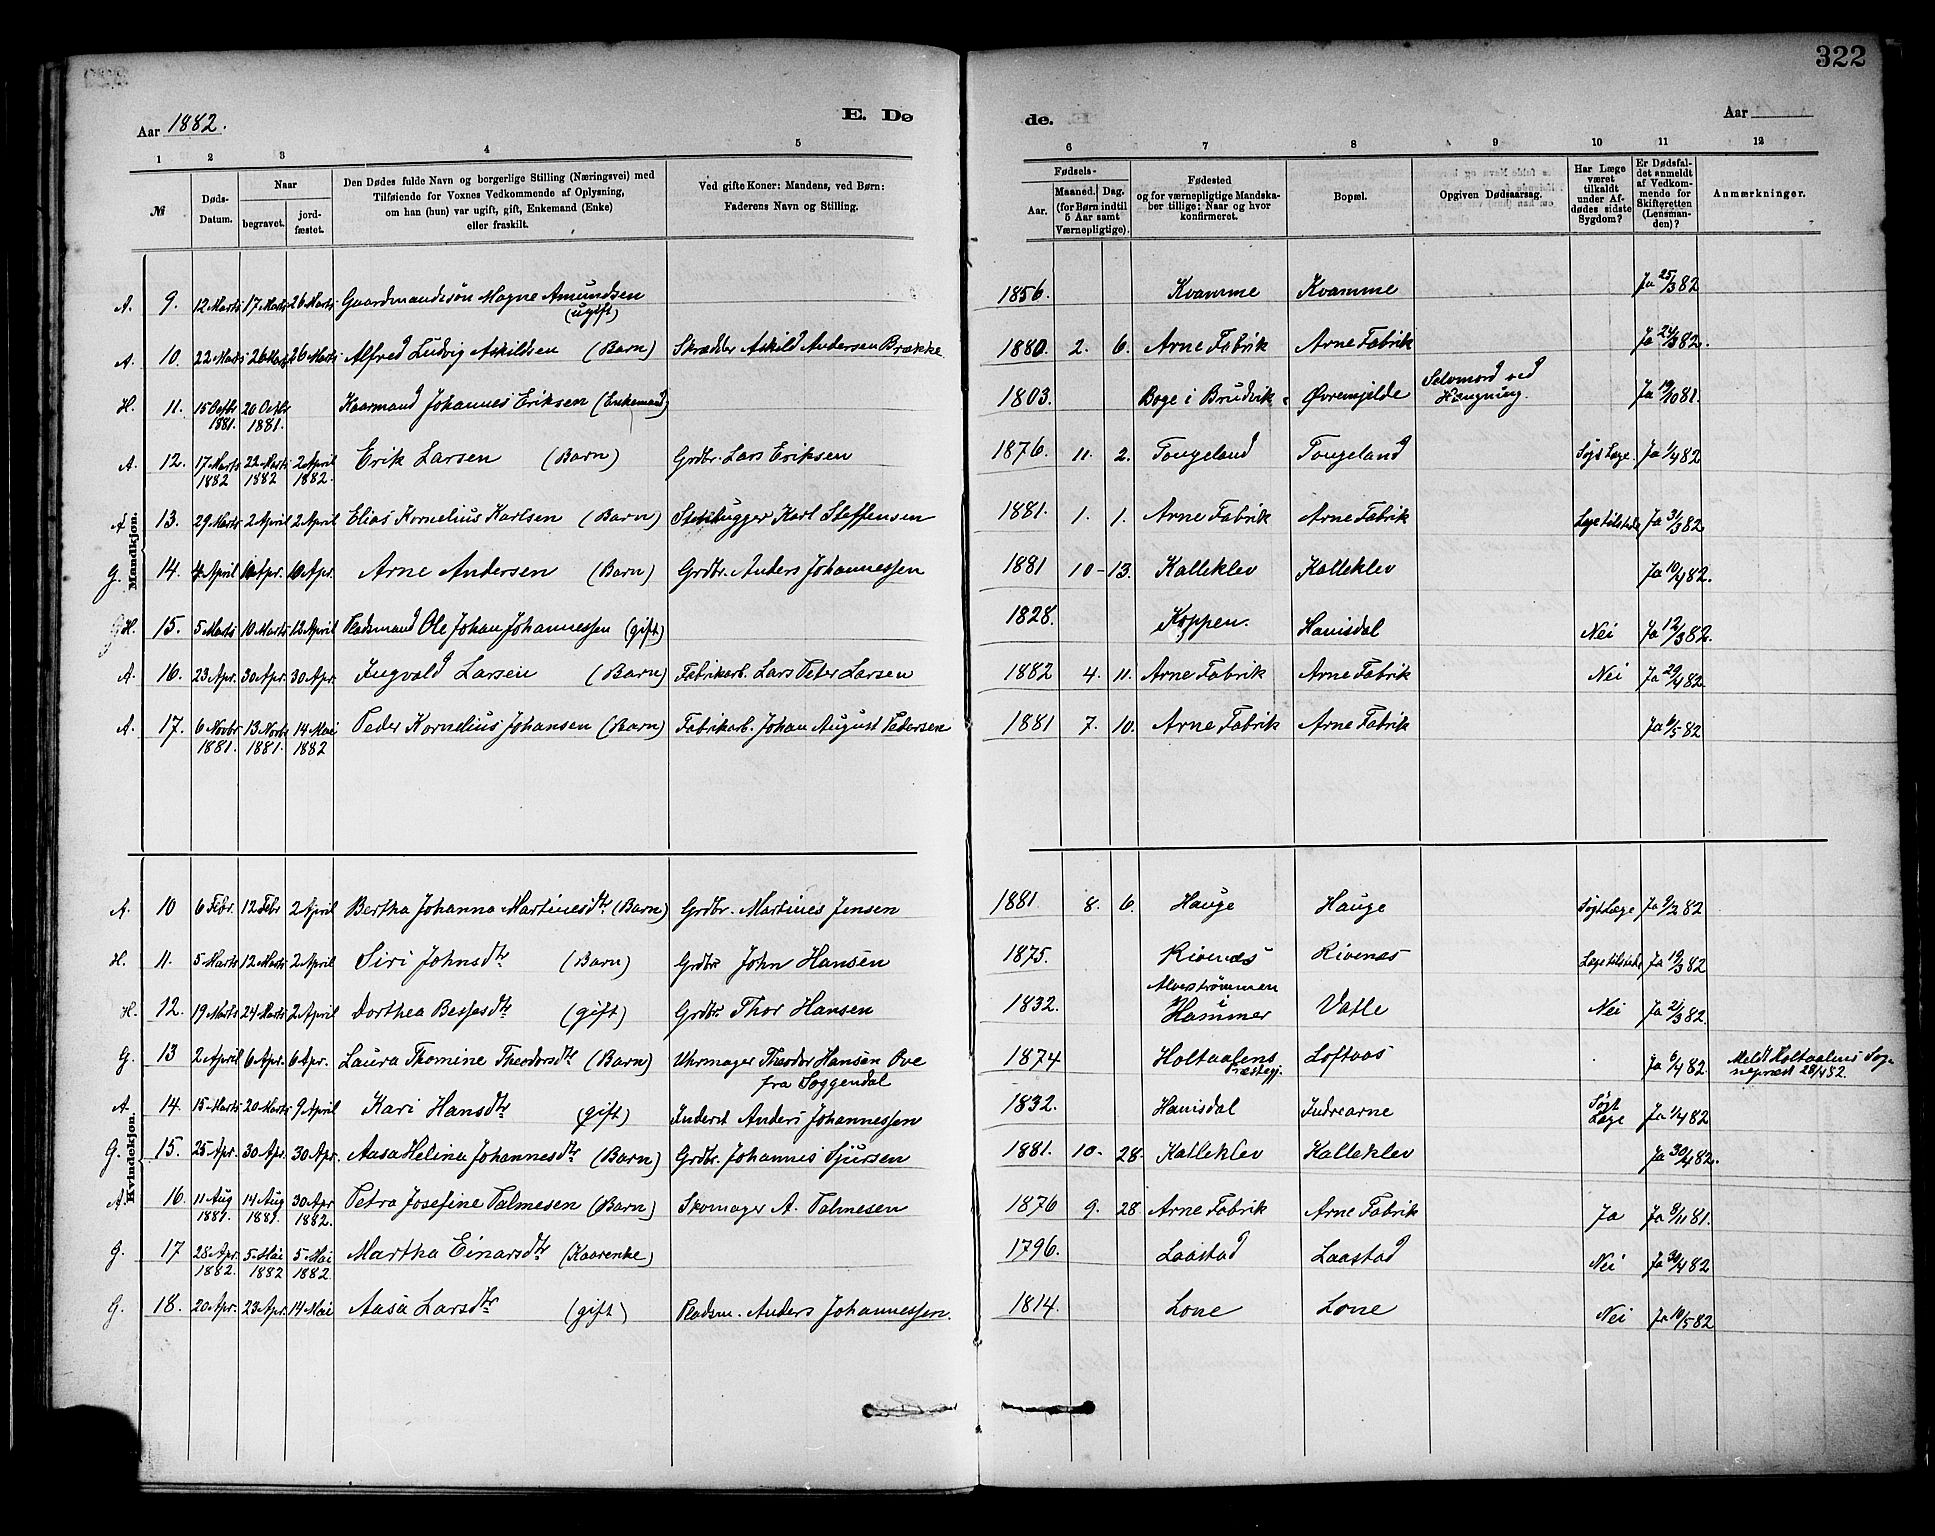 322
Aar 1882. E. Dø de. Aar
1 2 3 4 5 6 7 8 9 10 11 12
№
Døds-Datum.
Naar
begravet. jord-fæstet.
Den Dødes fulde Navn og borgerlige Stilling (Næringsvei) med
Tilføiende for Voxnes Vedkommende af Oplysning,
om han (hun) var ugift, gift, Enkemand (Enke)
eller fraskilt.
Ved gifte Koner: Mandens, ved Børn:
Faderens Navn og Stilling.
Fødsels-
Aar. Maaned. Dag.
(for Børn indtil
5 Aar samt
Værnepligtige).
Fødested
og for værnepligtige Mandska-
ber tillige: Naar og hvor
konfirmeret.
Bopæl.
Opgiven Dødsaarsag.
Har Læge
været
tilkaldt
under Af-
dødes sidste
Sygdom?
Er Dødsfal-
det anmeldt
af Vedkom-
mende for
Skifteretten
(Lensman-
den)?
Anmærkninger.
Mandkjøn.
A. 9. 12 Marts 17 Marts 26 Marts Gaardmandssøn Magne Amundsen (ugift) 1856. Kvamme Kvamme Ja 25/3 82
A. 10. 22 Marts 26 Marts 26 Marts Alfred Ludvig Askildsen (Barn) Skrædder Askild Andersen Brække 1880. 2. 6. Arne Fabrik Arne Fabrik Ja 24/3 82.
H. 11. 15 Octbr 1881. 20 Octbr 1881. Kaarmand Johannes Eriksen (Enkemand) 1803. Boge i Brudvik Øvremjelde Selvmord ved Hængning. Ja 19/10 81.
A. 12. 17 Marts 1882 22 Marts 1882 2 April 1882. Erik Larsen (Barn) Grdbr. Lars Eriksen 1876. 11. 2. Tongeland Tongeland Søgt Læge. Ja 1/4 82
A 13. 29 Marts 2 April 2 April Elias Kornelius Karlsen (Barn) Stenhugger Karl Steffensen 1881. 1. 1. Arne Fabrik Arne Fabrik Læge tilstede Ja 31/3 82
G. 14. 4 April 10 Apr. 10 Apr. Arne Andersen (Barn) Grdbr. Anders Johannessen 1881 10- 13. Kalleklev Kalleklev Ja 10/4 82.
H. 15. 5 Marts 10 Marts 12 April Pladsmand Ole Johan Johannessen (gift) 1828. Koppen. Hanisdal Nei Ja 12/3 82.
A. 16. 23 Apr. 30 Apr. 30 Apr. Ingvald Larsen (Barn) Fabrikarb. Lars Peter Larsen 1882 4. 11. Arne Fabrik Arne Fabrik Nei Ja 29/4 82.
A. 17. 6 Novbr 1881. 13 Novbr 1881. 14 Mai 1882 Peder Kornelius Johansen (Barn) Fabrikarb. Johan August Pedersen 1881 7. 10. Arne Fabrik Arne Fabrik Ja 6/5 82
Kvindekjøn.
A. 10 6 Febr. 12 Febr 2 April Bertha Johanna Martinesdtr (Barn) Grdbr. Martines Jensen 1881. 8. 6. Hauge Hauge Søgt Læge Ja 9/2 82
H. 11. 5 Marts 12 Marts 2 April Siri Johnsdtr (Barn) Grdbr John Hansen 1875. Rivenæs Rivenæs Læge tilstede Ja 19/3 82
H. 12. 19 Marts 24 Marts 2 April Dorthea Bessesdtr (gift) Grdbr Thor Hansen 1832. Alverstrømmen i Hammer Vatle Nei Ja 21/3 82.
G. 13 2 April 6 Apr. 6 Apr. Laura Thomine Theodorsdtr (Barn) Uhrmager Theodor Hansen Ove fra Soggendal 1874 Holtaalens Præstegj. Loftaas Ja 6/4 82. Meldt Holtaalens Sognepræst 28/4 82.
A 14. 15 Marts 20 Marts 9 April Kari Hansdtr (gift) Inderst Anders Johannessen 1832. Hanisdal Indrearne Søgt Læge Ja 1/4 82
G. 15. 25 Apr. 30 Apr. 30 Apr. Aasa Helina Johannesdtr (Barn) Grdbr. Johannes Sjursen 1881. 10. 28. Kalleklev Kalleklev Ja 30/4 82.
A 16. 11 Aug 1881. 14 Aug 1881. 30 Apr 1882. Petra Josefine Palmesen (Barn) Skomager A. Palmesen 1876 9. 28 Arne Fabrik Arne Fabrik Ja Ja 8/11 81.
G. 17 28 Apr. 1882. 5 Mai 1882 5 Mai 1882 Martha Einarsdtr (Kaarenke) 1796. Laastad Laastad Nei Ja 30/4 82
G. 18. 20 Apr. 23 Apr. 14 Mai Aasa Larsdtr (gift) Pladsm. Anders Johannessen. 1814. Lone Lone Nei Ja 10/5 82